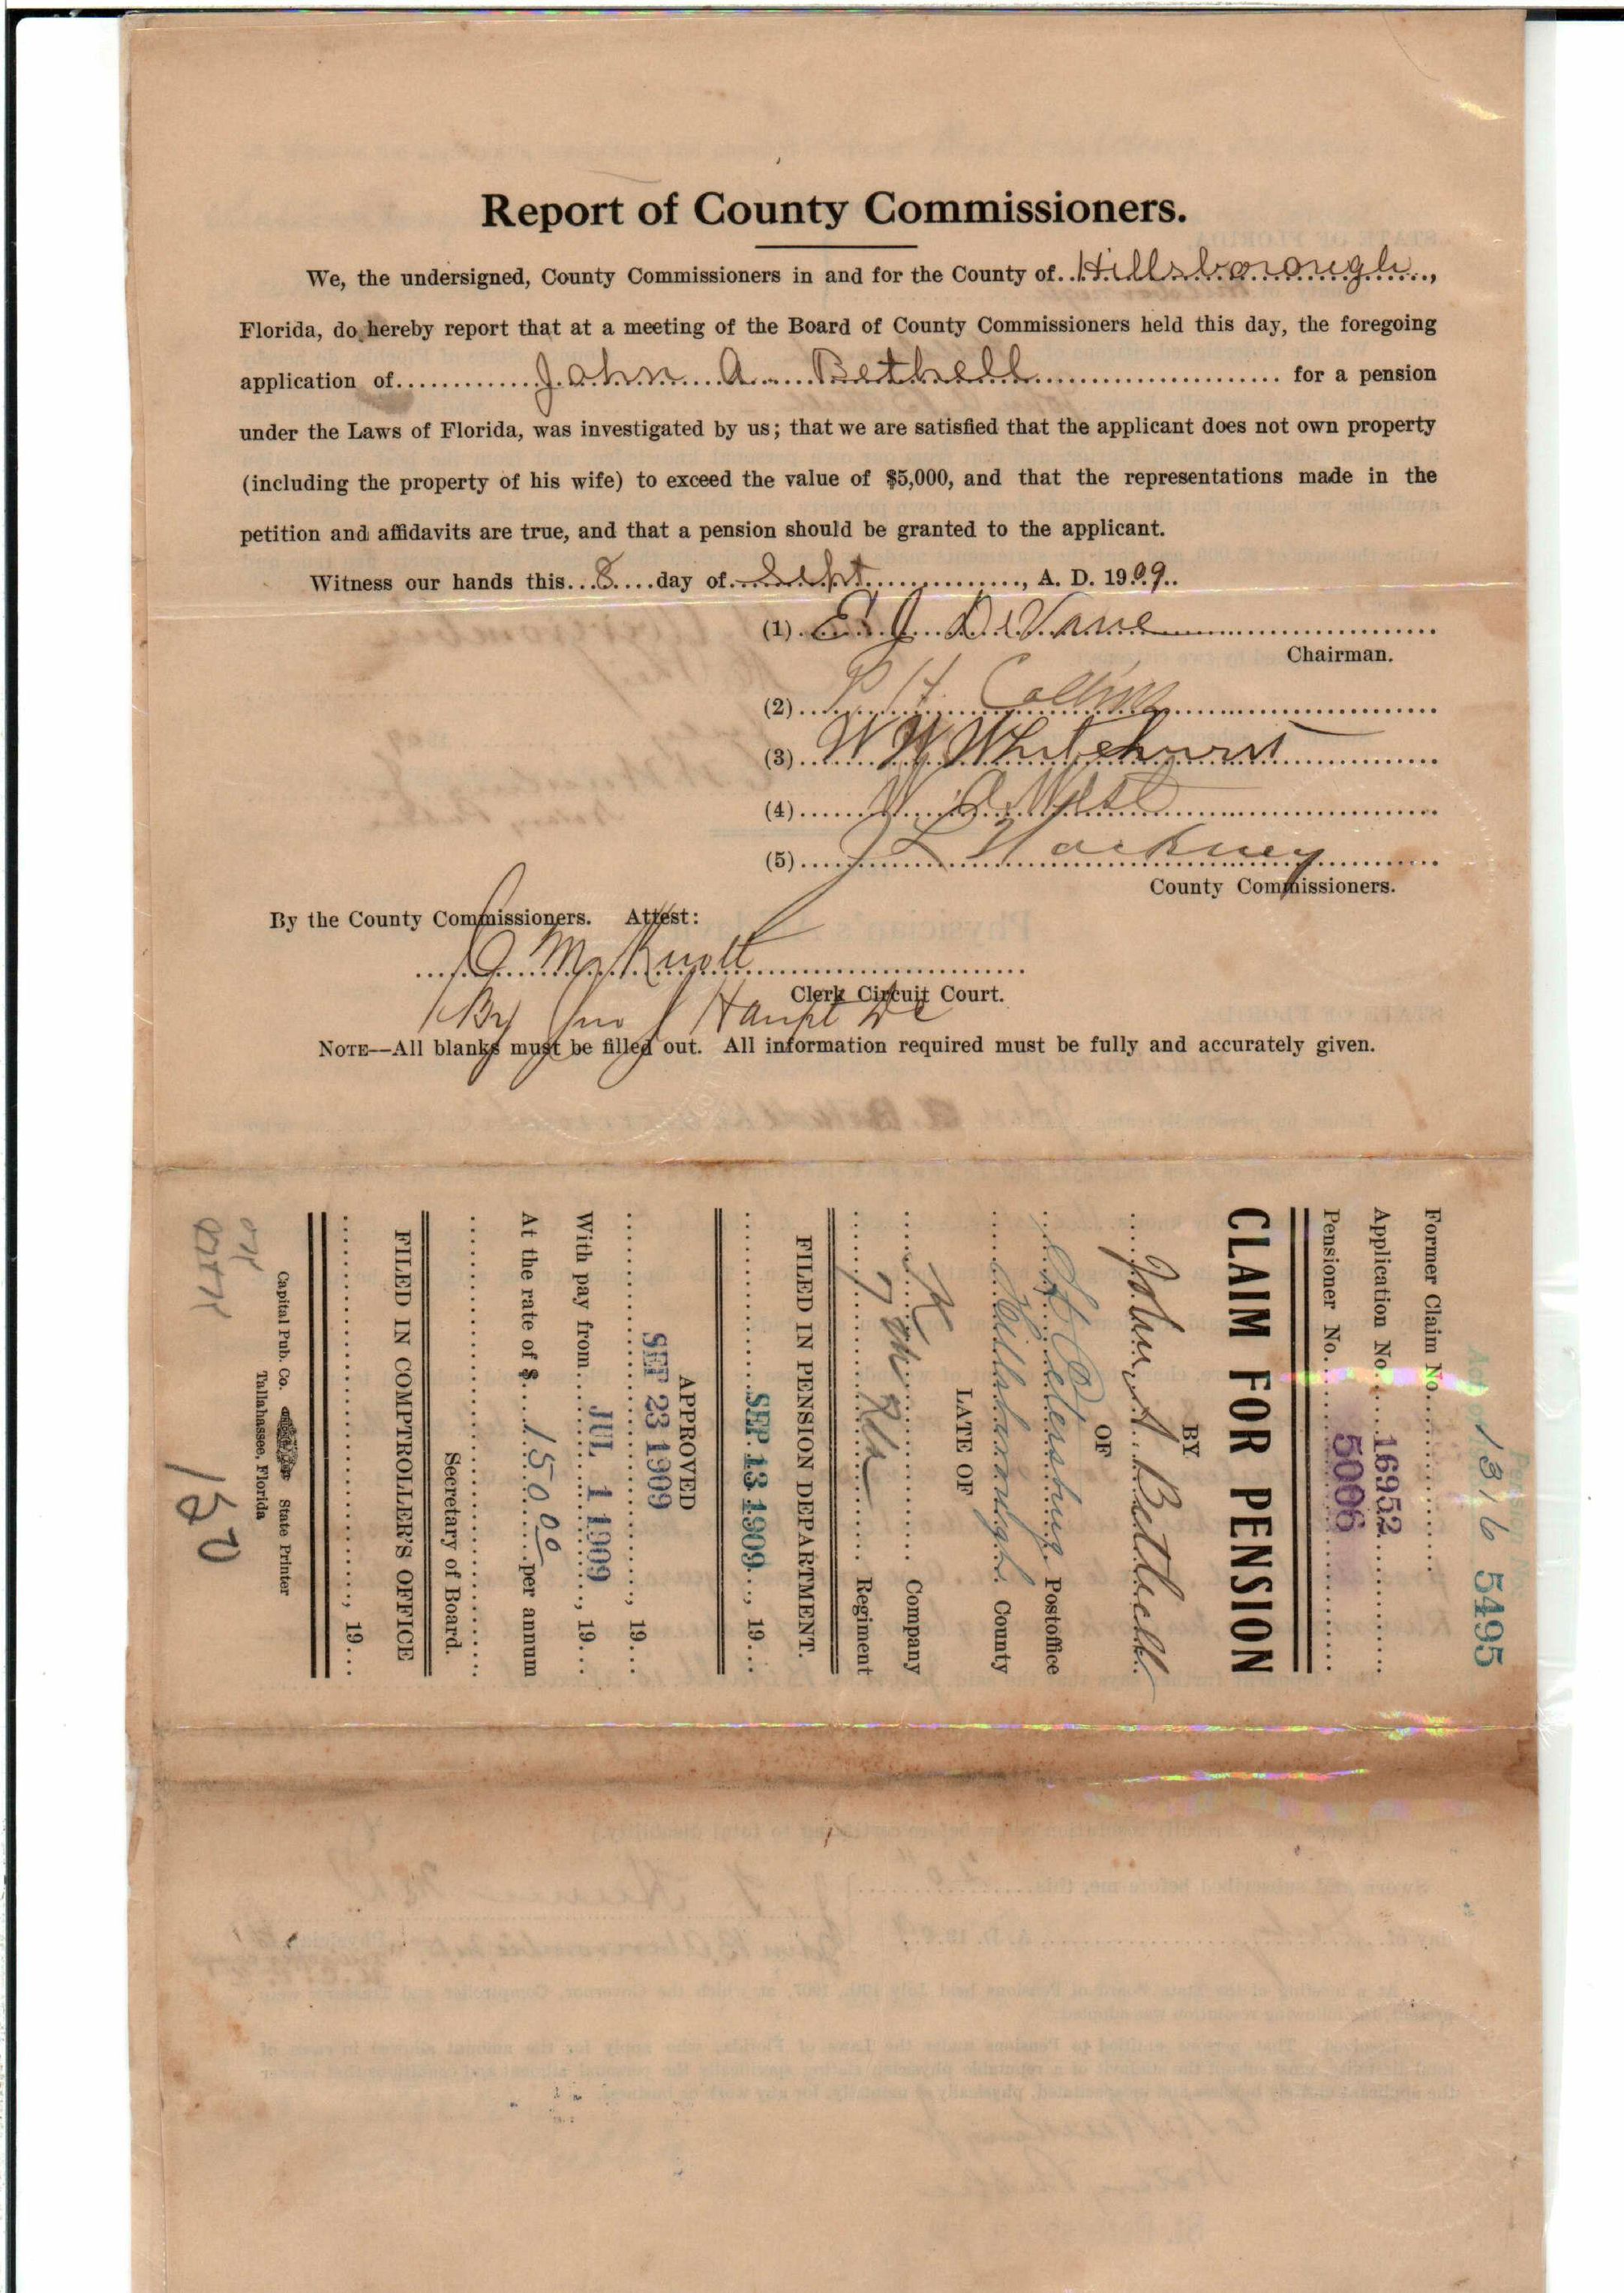 Report of County Commissioners.
We, the undersigned, County Commissioners in and for the County of Hillsborough,
Florida, do hereby report that at a meeting of the Board of County Commissioners held this day, the foregoing
application of John A. Bethell for a pension
under the Laws of Florida, was investigated by us; that we are satisfied that the applicant does not own property
(including the property of his wife) to exceed the value of $5,000, and that the representations made in the
petition and affidavits are true, and that a pension should be granted to the applicant.
Witness our hands this 8 day of Sept, A. D. 1909.
(1) E J DeVane
Chairman.
(2) Collins
(3) W W Whitehurst
(4) W A West
(5) J L Hackney
County Commissioners.
By the County Commissioners. Attest:
Knott
Clerk Circuit Court.
By Jno Haupt DC
NOTE—All blanks must be filled out. All information required must be fully and accurately given.
Pension No. 5495
Act of 1316
Former Claim No.
Application No. 16952
Pensioner No. 5006
CLAIM FOR PENSION
BY
John A Bethell
OF
St Petersburg Postoffice
Hillsborough County
LATE OF
K Company
7th Fla Regiment
FILED IN PENSION DEPARTMENT.
SEP 13 1909, 19
APPROVED
SEP 23 1909, 19
With pay from JUL 1 1909, 19
At the rate of $ 150 00 per annum
Secretary of Board.
FILED IN COMPTROLLER'S OFFICE
, 19
Capital Pub. Co. State Printer
Tallahassee, Florida
150